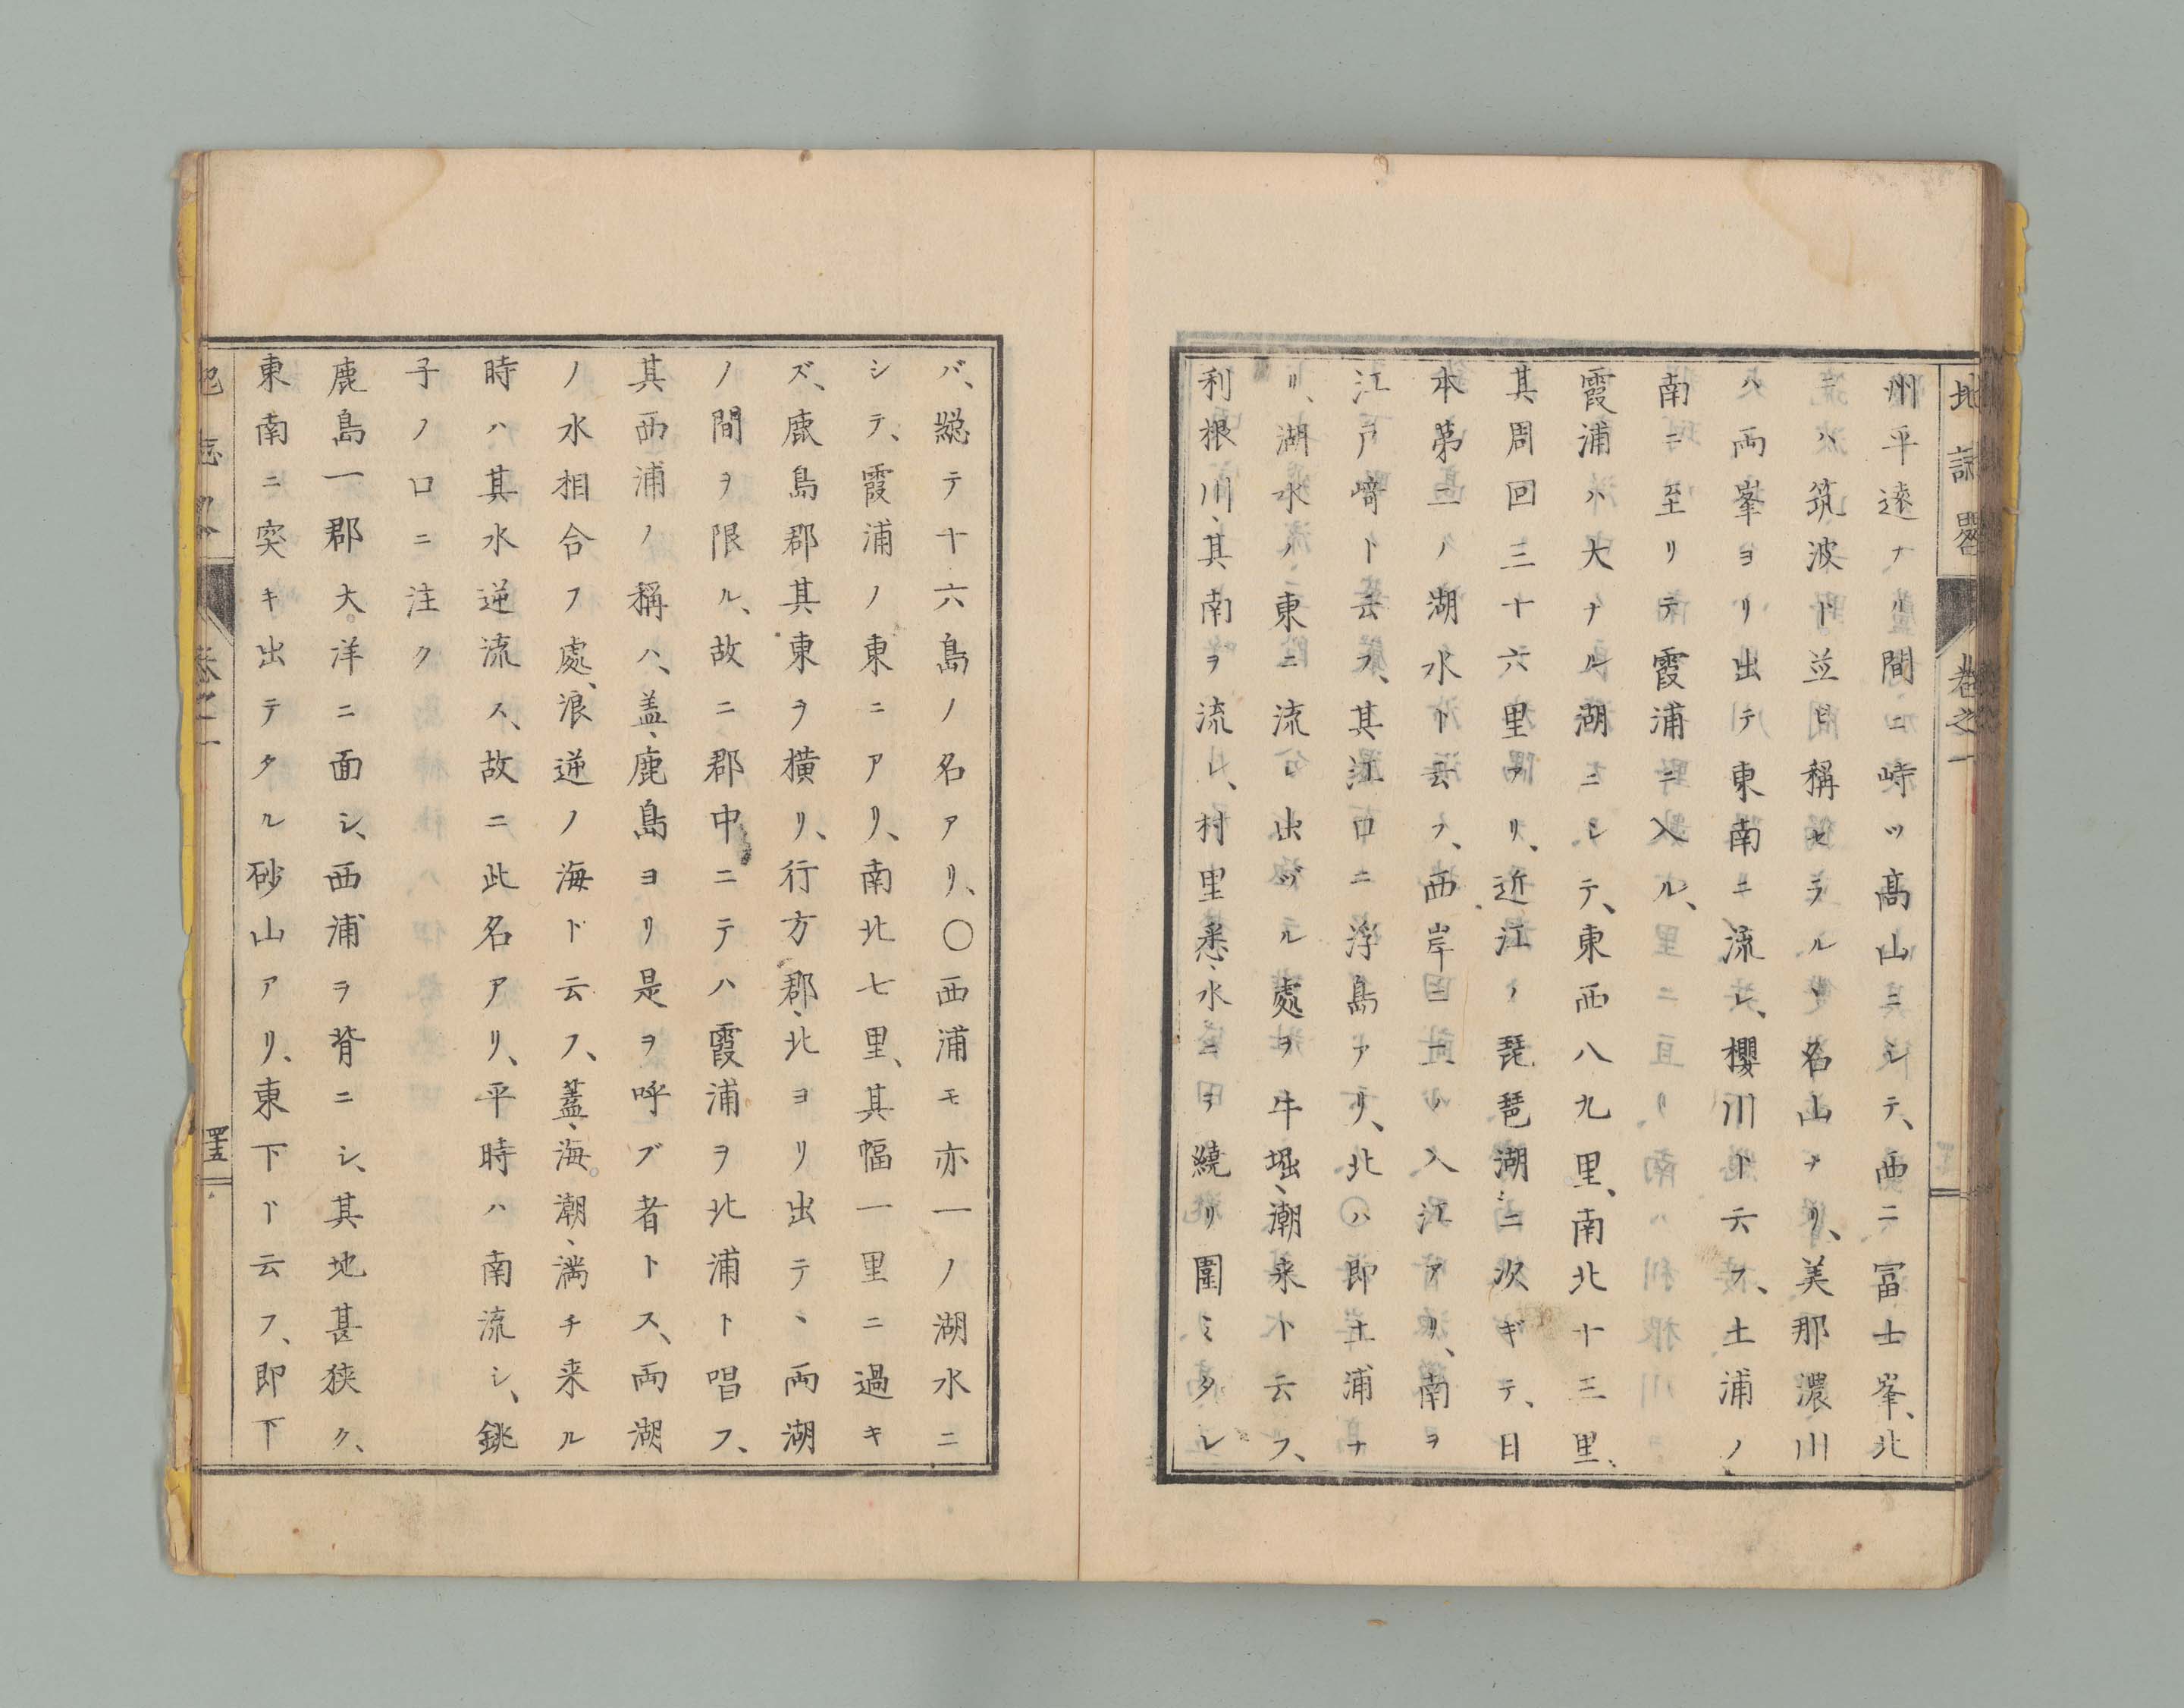 地誌畧 巻之一
州平遠ナル間ニ峙ツ高山ニシテ、西ニ富士峯、北
ニハ筑波ト並ビ稱セラル丶名山ナリ、美那濃川
ハ両峯ヨリ出テ東南ニ流レ、櫻川ト云フ、土浦ノ
南ニ至リテ霞浦ニ入ル、
霞浦ハ大ナル湖ニシテ、東西八九里、南北十三里、
其周回三十六里アリ、近江ノ琵琶湖ニ次ギテ、日
本第二ノ湖水ト云フ、西岸ニ二ノ入江アリ、南ヲ
江戸﨑ト云フ、其江口ニ浮島アリ、北ハ即土浦ナ
リ、湖水ノ東ニ流レ出ヅル處ヲ牛堀、潮来ト云フ、
利根川、其南ヲ流レ、村里悉、水ニヲ繞リ圍ミタレ
バ、総テ十六島ノ名アリ、〇西浦モ亦一ノ湖水ニ
シテ、霞浦ノ東ニアリ、南北七里、其幅一里ニ過キ
ズ、鹿島郡其東ヲ横リ、行方郡、北ヨリ出テ丶両湖
ノ間ヲ限ル、故ニ郡中ニテハ霞浦ヲ北浦ト唱フ、
其西浦ノ稱ハ、盖、鹿島ヨリ是ヲ呼ブ者トス、両湖
ノ水相合フ處、浪逆ノ海ト云フ、蓋、海潮、満チ来ル
時ハ其水逆流ス、故ニ此名アリ、平時ハ南流シ、銚
子ノ口ニ注ク
鹿島一郡大洋ニ面シ、西浦ヲ背ニシ、其地甚狭ク、
東南ニ突キ出テタル砂山アリ、東下ト云フ、即下
地誌畧 巻之一 四十五